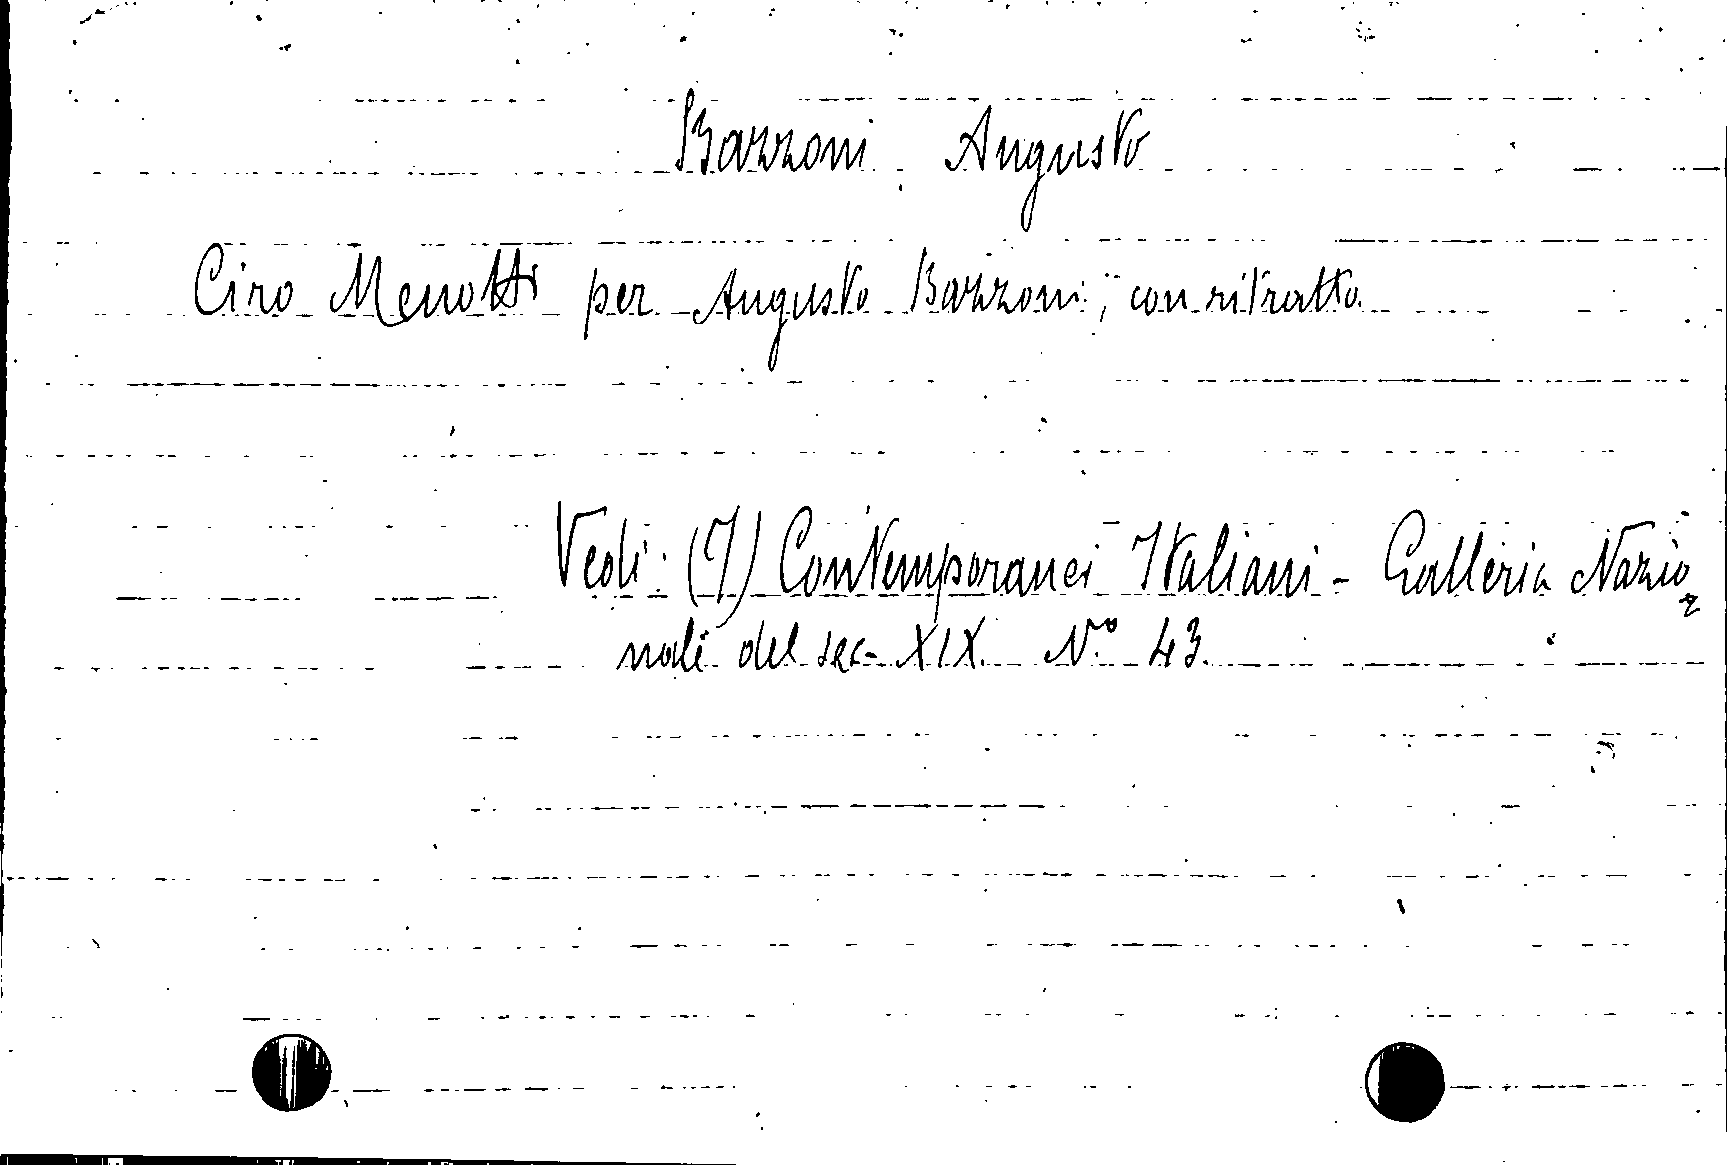 Bazzoni Augusto
Ciro Menotti per Augusto Bazzoni; con ritratto.
Vedi: (I) Contemporanei Italiani - Galleria Nazio=
nale del sec. XIX. N.° 43.